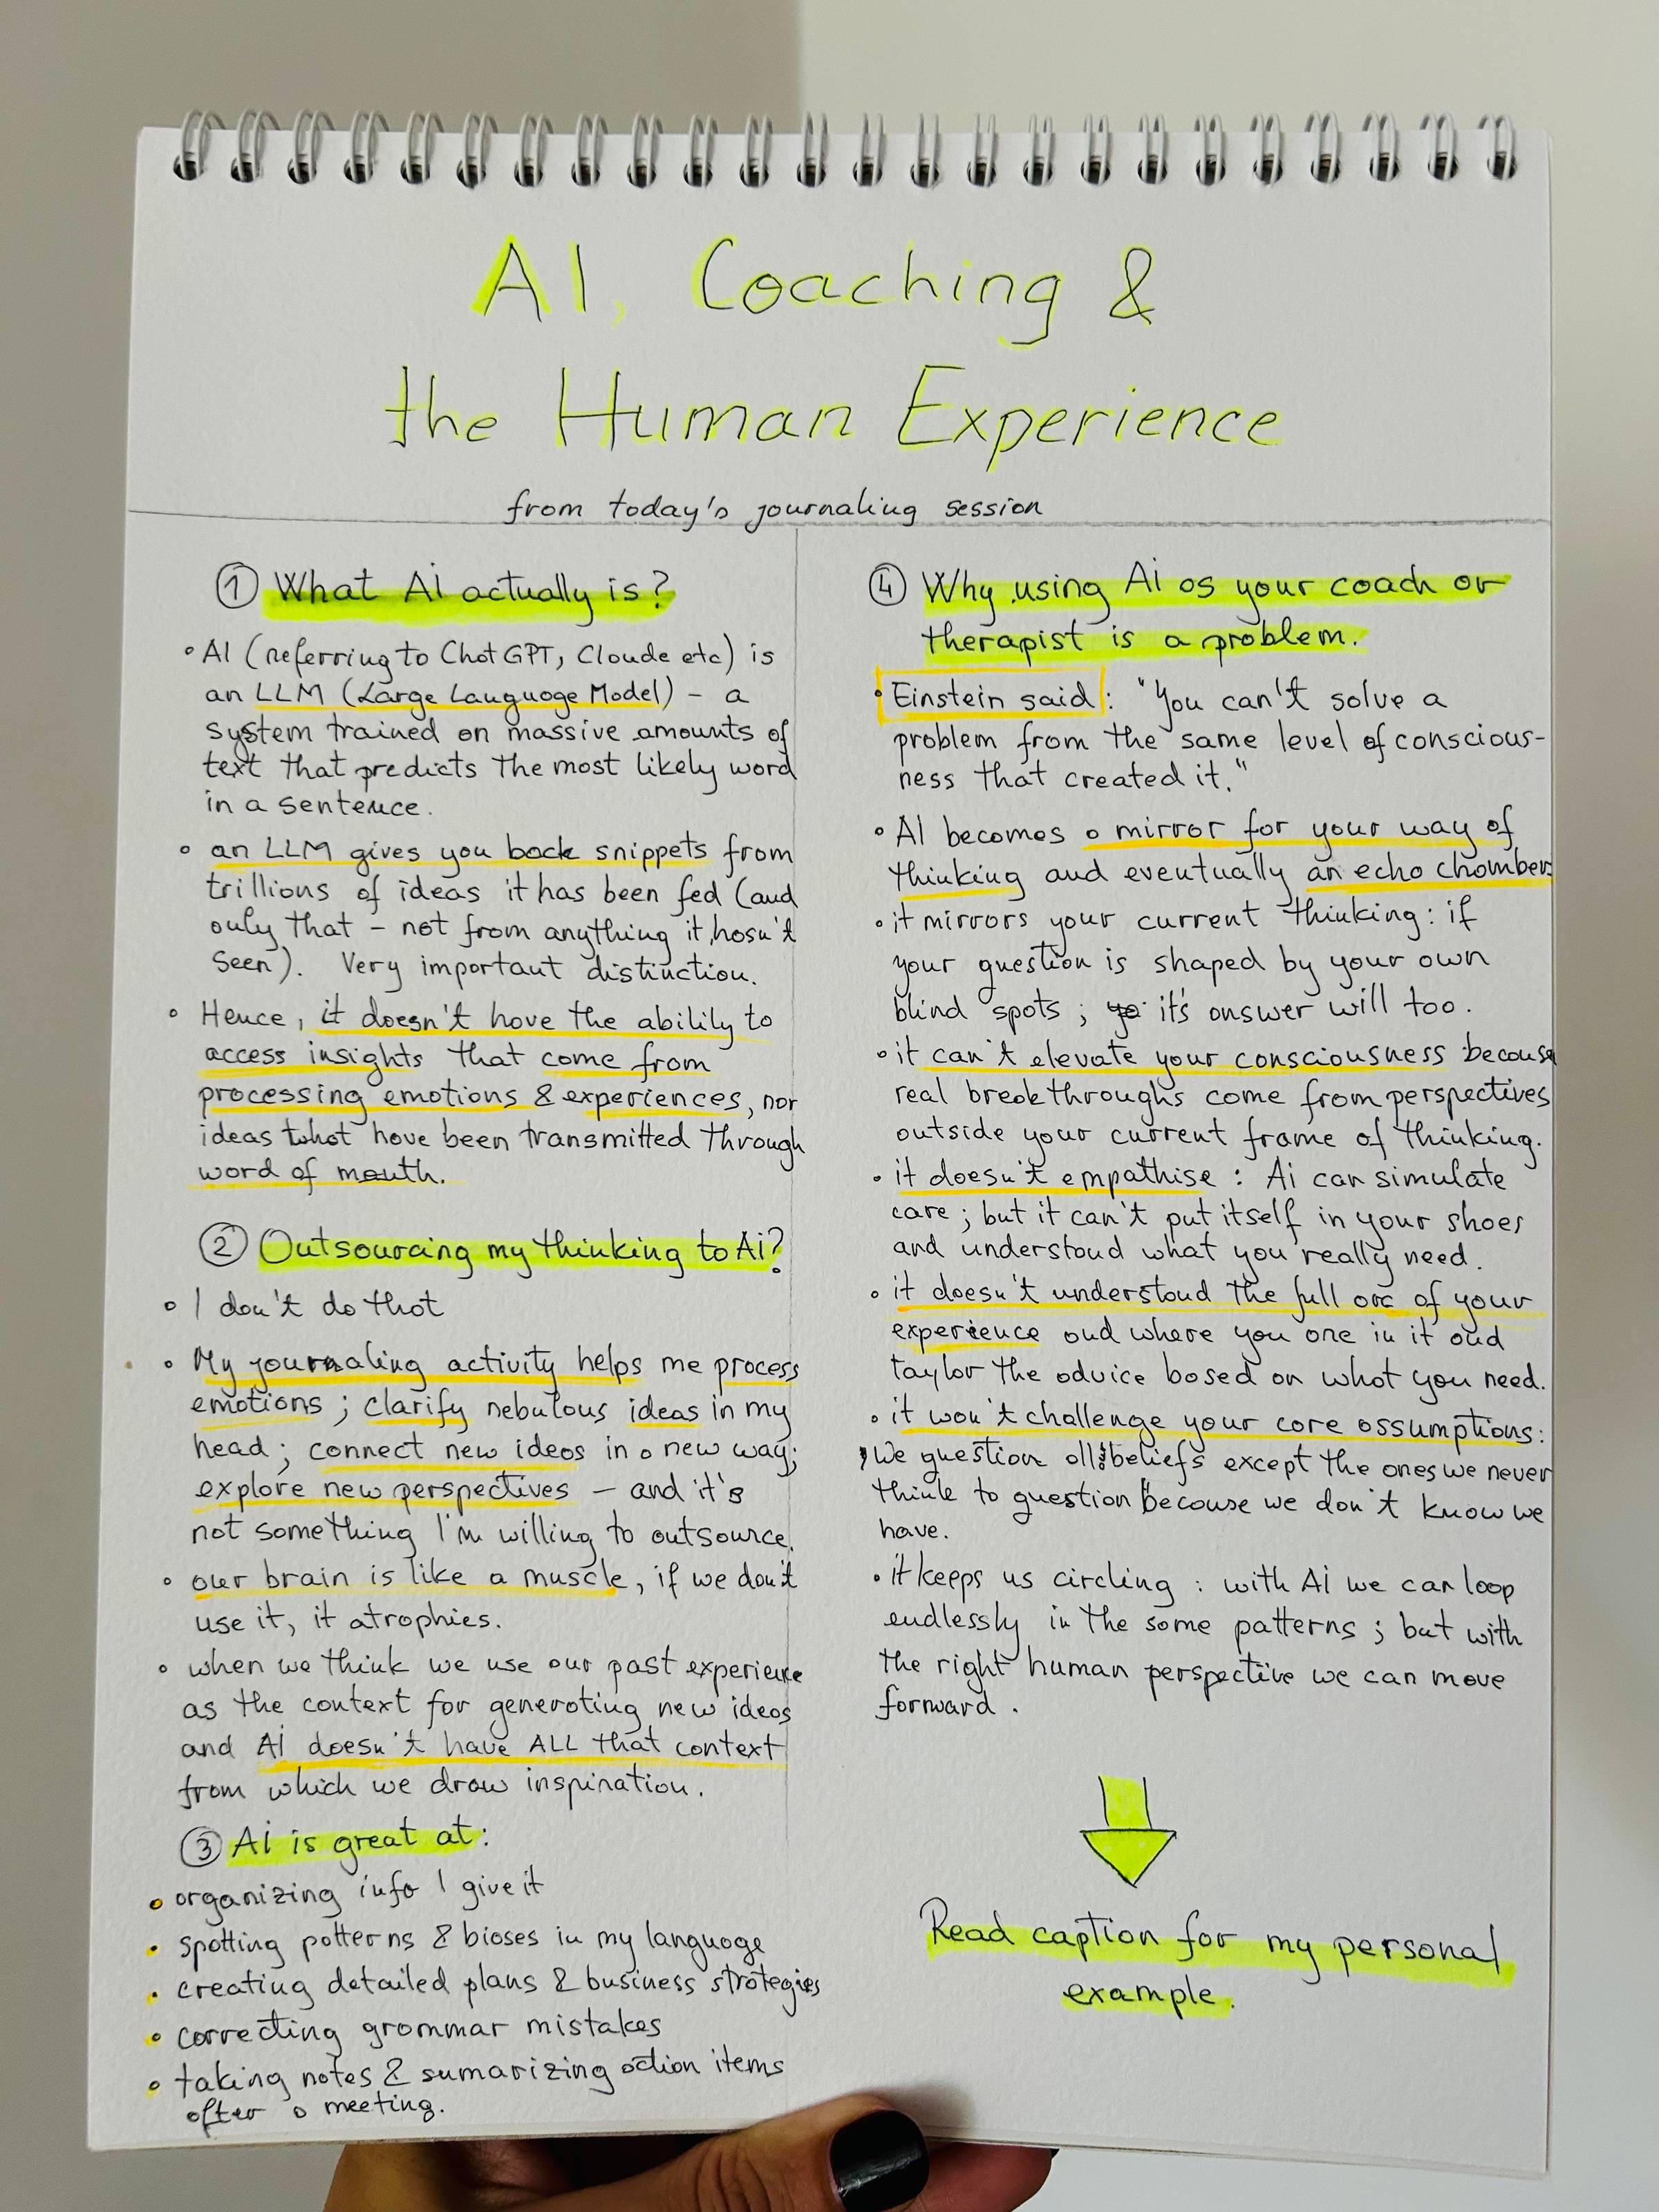 AI, Coaching &
the Human Experience
from today's journaling session
① What Ai actually is?
• AI (referring to ChatGPT, Claude etc) is
an LLM (Large Language Model) – a
system trained on massive amounts of
text that predicts the most likely word
in a sentence.
• an LLM gives you back snippets from
trillions of ideas it has been fed (and
only that – not from anything it hasn't
seen). Very important distinction.
• Hence, it doesn't have the ability to
access insights that come from
processing emotions & experiences, nor
ideas what have been transmitted through
word of mouth.
② Outsourcing my thinking to Ai?
• I don't do that
• My journaling activity helps me process
emotions; clarify nebulous ideas in my
head; connect new ideas in a new way;
explore new perspectives – and it's
not something I'm willing to outsource.
• our brain is like a muscle, if we don't
use it, it atrophies.
• when we think we use our past experience
as the context for generating new ideas
and Ai doesn't have ALL that context
from which we draw inspiration.
③ Ai is great at:
• organizing info I give it
• spotting patterns & biases in my language
• creating detailed plans & business strategies
• correcting grammar mistakes
• taking notes & sumarizing action items
after a meeting.
④ Why using Ai as your coach or
therapist is a problem.
• Einstein said: "You can't solve a
problem from the same level of conscious-
ness that created it."
• AI becomes a mirror for your way of
thinking and eventually an echo chamber:
• it mirrors your current thinking: if
your question is shaped by your own
blind spots; it's answer will too.
• it can't elevate your consciousness because
real breakthroughs come from perspectives
outside your current frame of thinking.
• it doesn't empathise: Ai can simulate
care; but it can't put itself in your shoes
and understand what you really need.
• it doesn't understand the full arc of your
experience and where you are in it and
taylor the advice based on what you need.
• it won't challenge your core assumptions:
We question all beliefs except the ones we never
think to question because we don't know we
have.
• it keeps us circling: with Ai we can loop
endlessly in the same patterns; but with
the right human perspective we can move
forward.
Read caption for my personal
example.